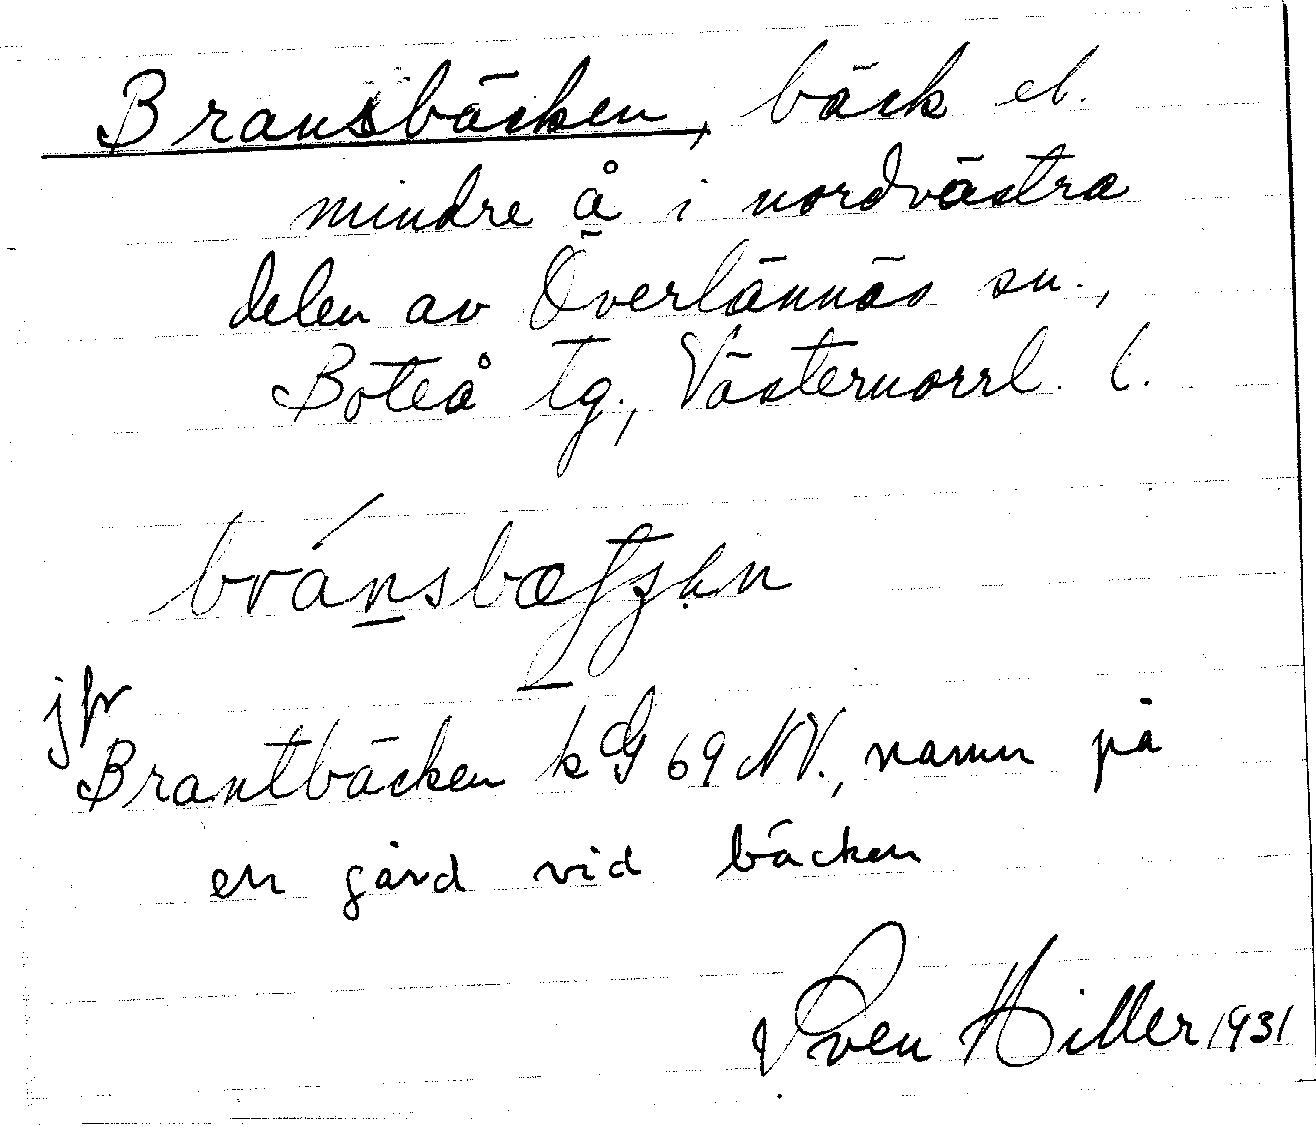 Bransbäcken, bäck el.
mindre å i nordvästra
delen av Överlännäs sn.,
Boteå tg., Västernorrl. l.
jfr
Brantbäcken kG 69 NV., namn på
en gård vid bäcken
Sven Hiller 1931